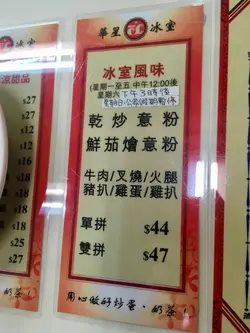 華星冰室
冰室風味
(星期一至五 中午12:00後
星期六下午3時後
星期日公眾假期暫停
乾炒意粉
鮮茄燴意粉
牛肉/叉燒/火腿
豬扒/雞蛋/雞扒
單拼 $44
雙拼 $47
用心做好炒蛋、奶茶!
冰室
涼甜品
$27
$27
$12
$16
$12
$18
$18
$25
$27
奶茶!